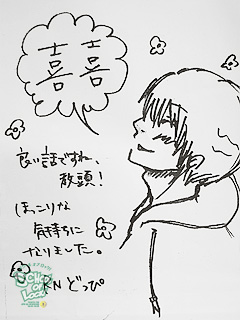 喜喜
良い話ですね、
教頭!
ほっこりな
気持ちに
なりました。
RN どっぴ
SCHOOL
OF
LOCK!